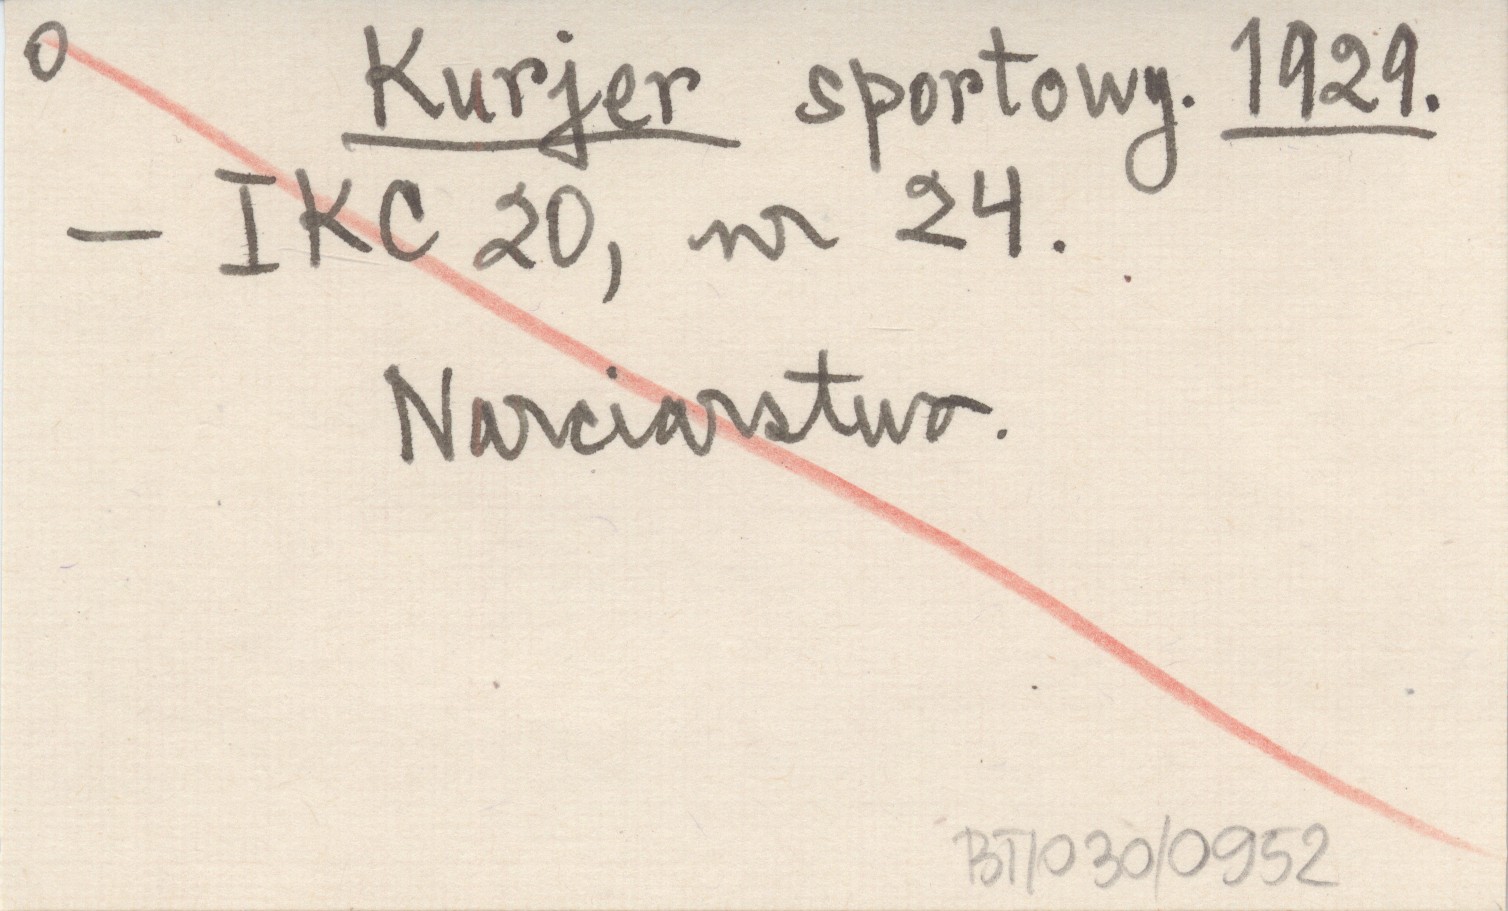 0 Kurjer sportowy. 1929.
– IKC 20, nr 24.
Narciarstwo.
BT/030/0952